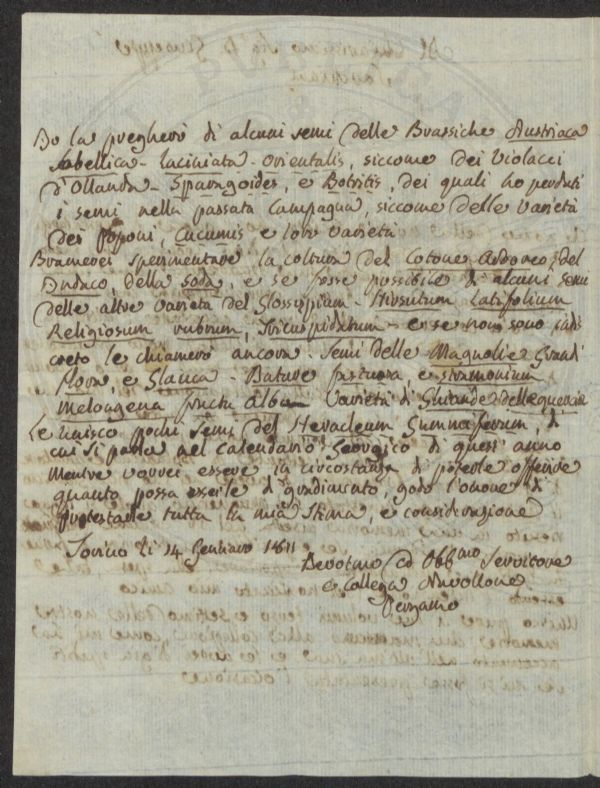 Io la pregherò di alcuni semi delle Brassiche Austriaca
Sabellica - Laciniata - Orientalis, siccome dei Violacei
d'Ollanda - Sparagoides, e Botritis, dei quali ho perduti
i semi nella passata Campagna, siccome delle varietà
dei Poponi, Cucumis e loro varietà
Bramerei sperimentare la coltura del Cotone Arboreo, del
Endaco, della soda, e se fosse possibile di alcuni semi
delle altre varietà del Glossypium - Hirsutum Latifolium
Religiosum rubrum, Tricuspidatum - e se non sono indis
creto le chiamerò ancora. Semi delle Magnolie Grandi
flora, e Glauca - Dature fastuosa, e stramonium
Melongena fructu albo varietà di Ghiande delle quercie
Le unisco pochi semi del Heracleum Gummiferum, di
cui si parla nel Calendario Georgico di quest'anno
Mentre vorrei essere in circostanza di poterle offerire
quanto possa esserle di gradimento, godo l'onore di
protestarle tutta la mia stima, e considerazione
Torino li 14 Gennaro 1811
Devotmo ed Obbmo Servitore
e Collega Nuvollone
Pergamo